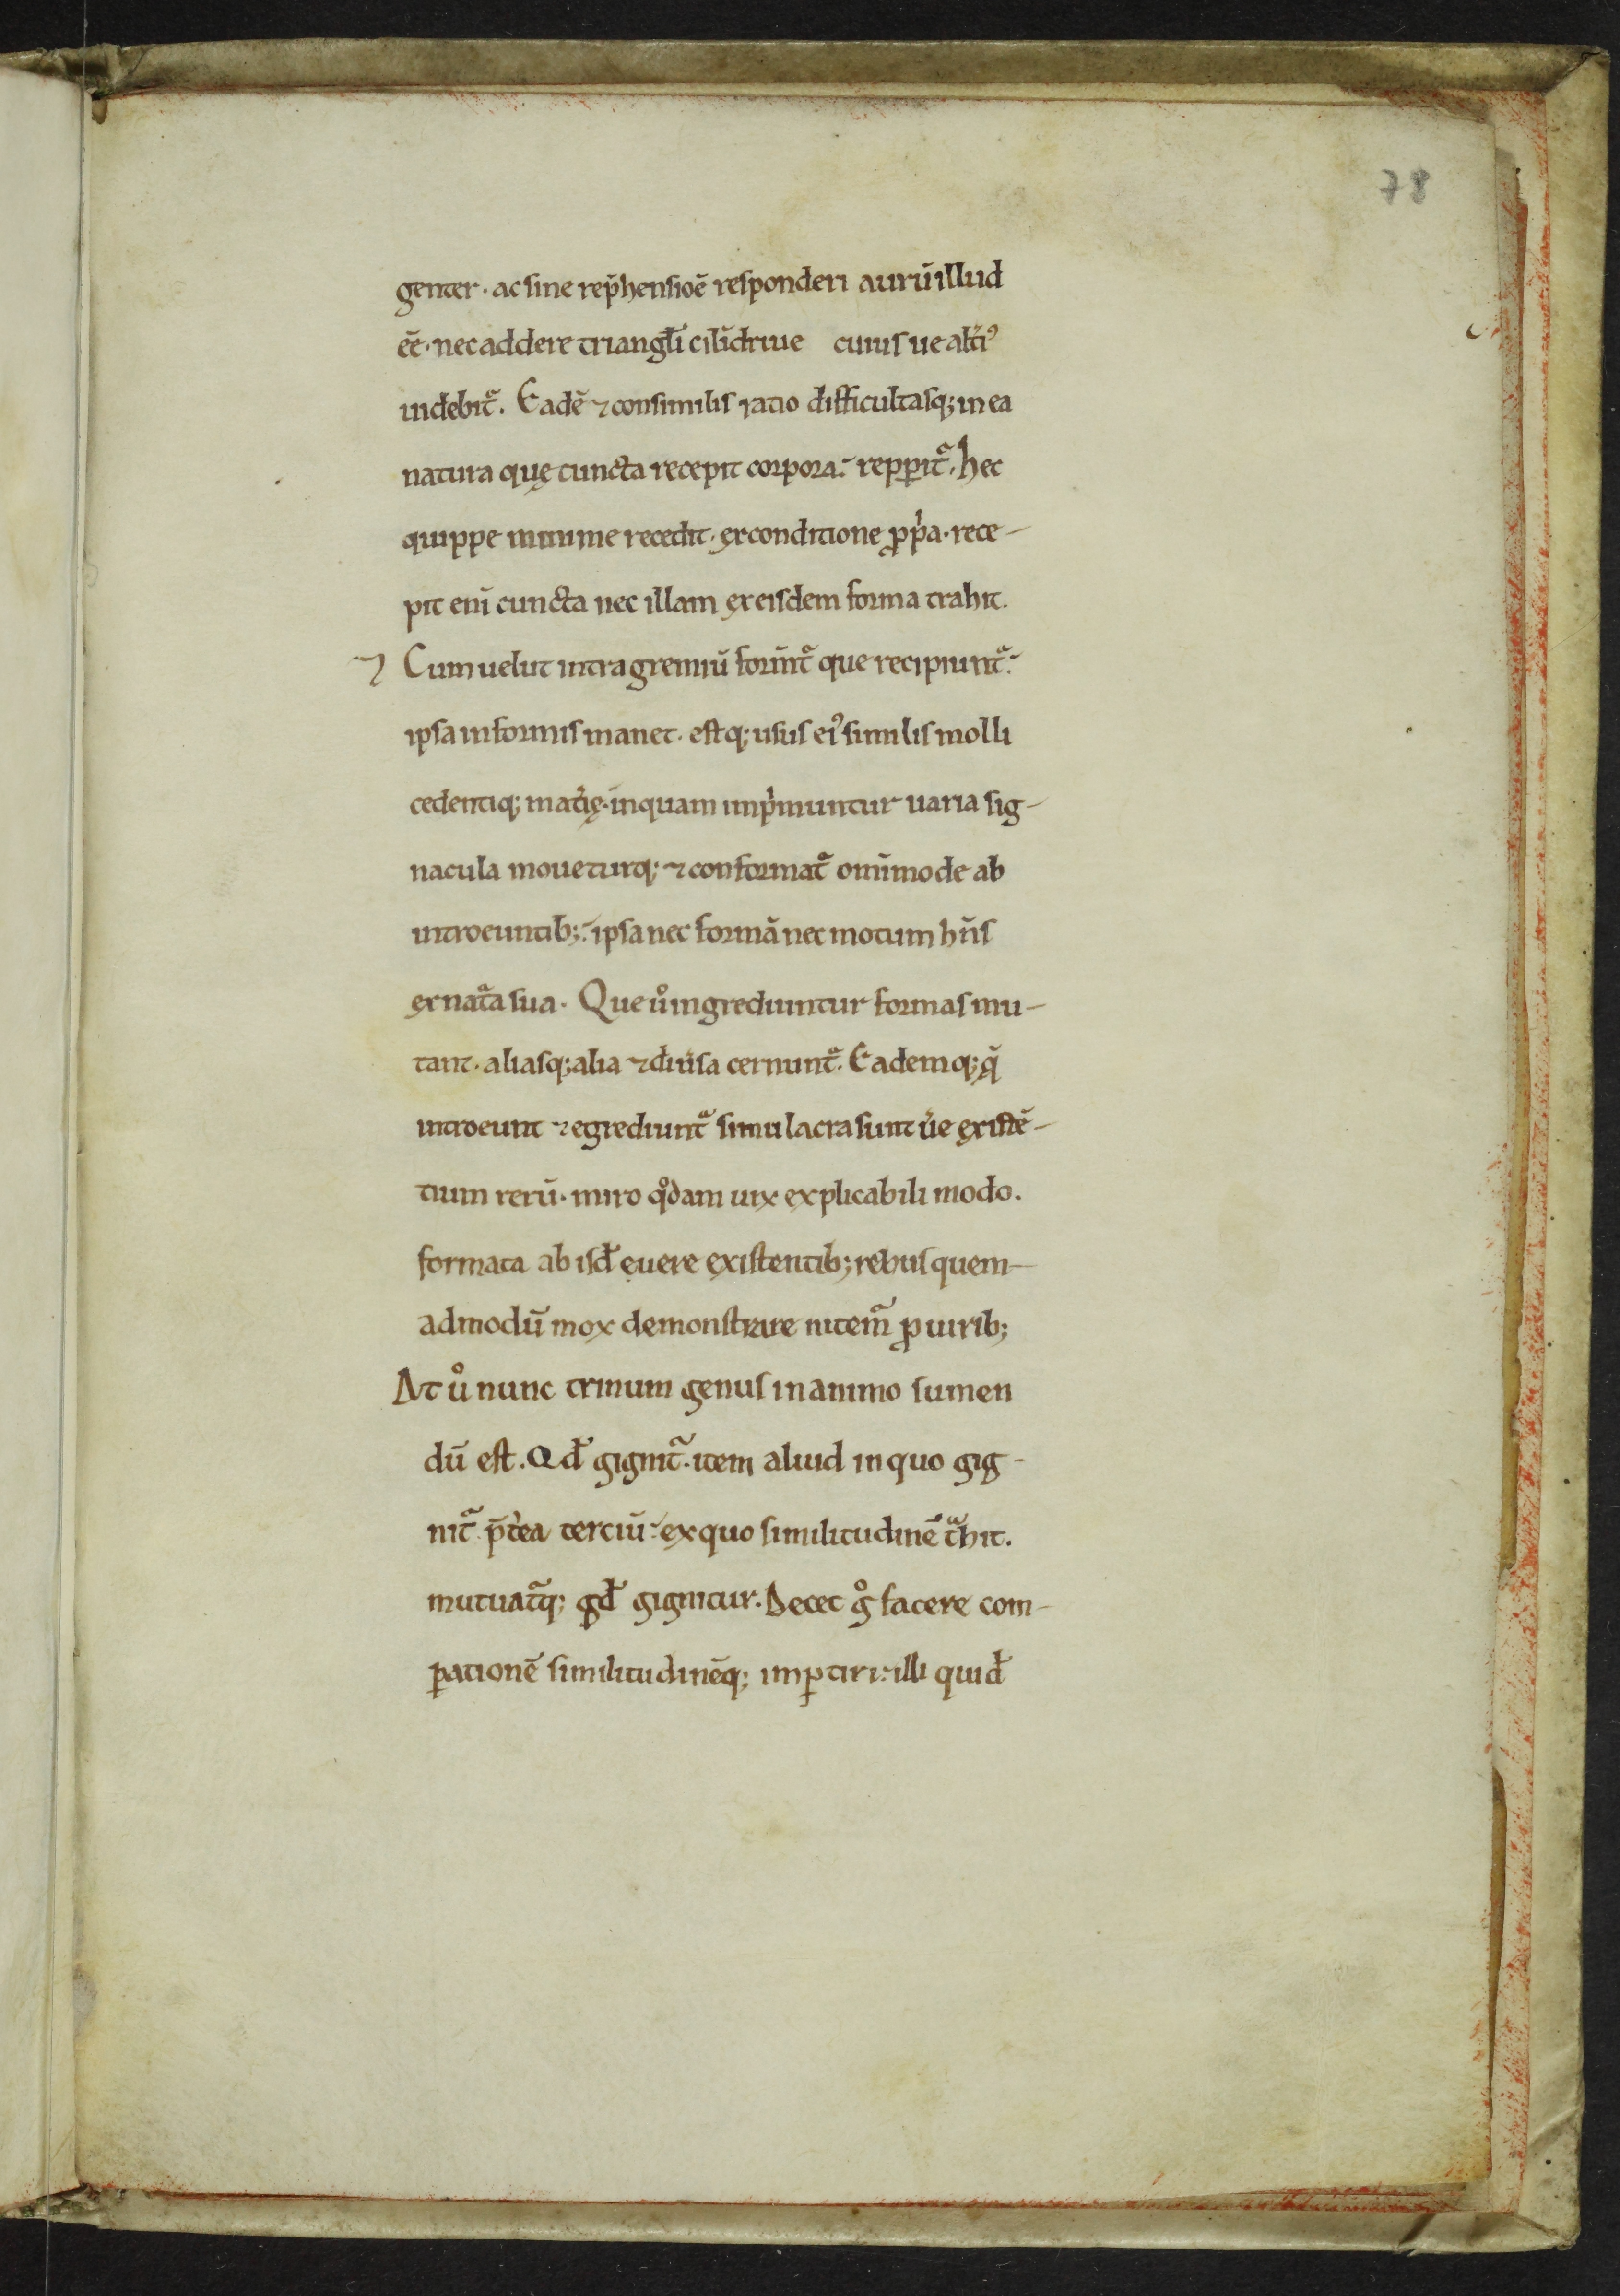 78
genter · ac sine rep̄hensioē responderi aurū illud
eē· nec addere triangl̄i cilīdriue cuius ue altī᾽
uidebit᷑. Eadē ⁊ consimilis ratio difficultasq; in ea
natura quę cuncta recepit corpora· repꝑit᷑. hec
quippe minime recedit· ex conditione ꝓpͥa· rece-
pit eni᷑ cuncta nec illam ex eisdem forma trahit.
⁊ Cum uelut intra gremiū formnt᷑ que recipiunt᷑·
ipsa informis manet· estq; usus eiꝰ similis molli
cedentiq; mat͛ię· in quam impͥmuntur uaria sig-
nacula moueturq; ⁊ conformat᷑ omīmode ab
introeuntib; ipsa nec formā nec motum hn̄s
ex nat᷑a sua. Que uͦ ingrediuntur formas mu-
tant· aliasq; alia ⁊ diu͛sa cernunt᷑. Eademq; q̄
introeunt ⁊ egrediunt᷑ simulacra sunt u͛e existē-
tium rerū· miro qͦdam uix explicabili modo.
formata ab isd̄ euere existentib; rebus quem-
admodū mox demonstrare nitem᷑ ꝓ uirib;
At uͦ nunc trinum genus in animo sumen
dū est. Qd̄ gignit᷑· item aliud in quo gig-
nit᷑ p̄t͛ea terciū· ex quo similitudinē tᷓhit.
mutuat᷑q; qd̄ gignitur. Decet gͦ facere com-
ꝑationē similitudinēq; imꝑtiri· illi quid̄